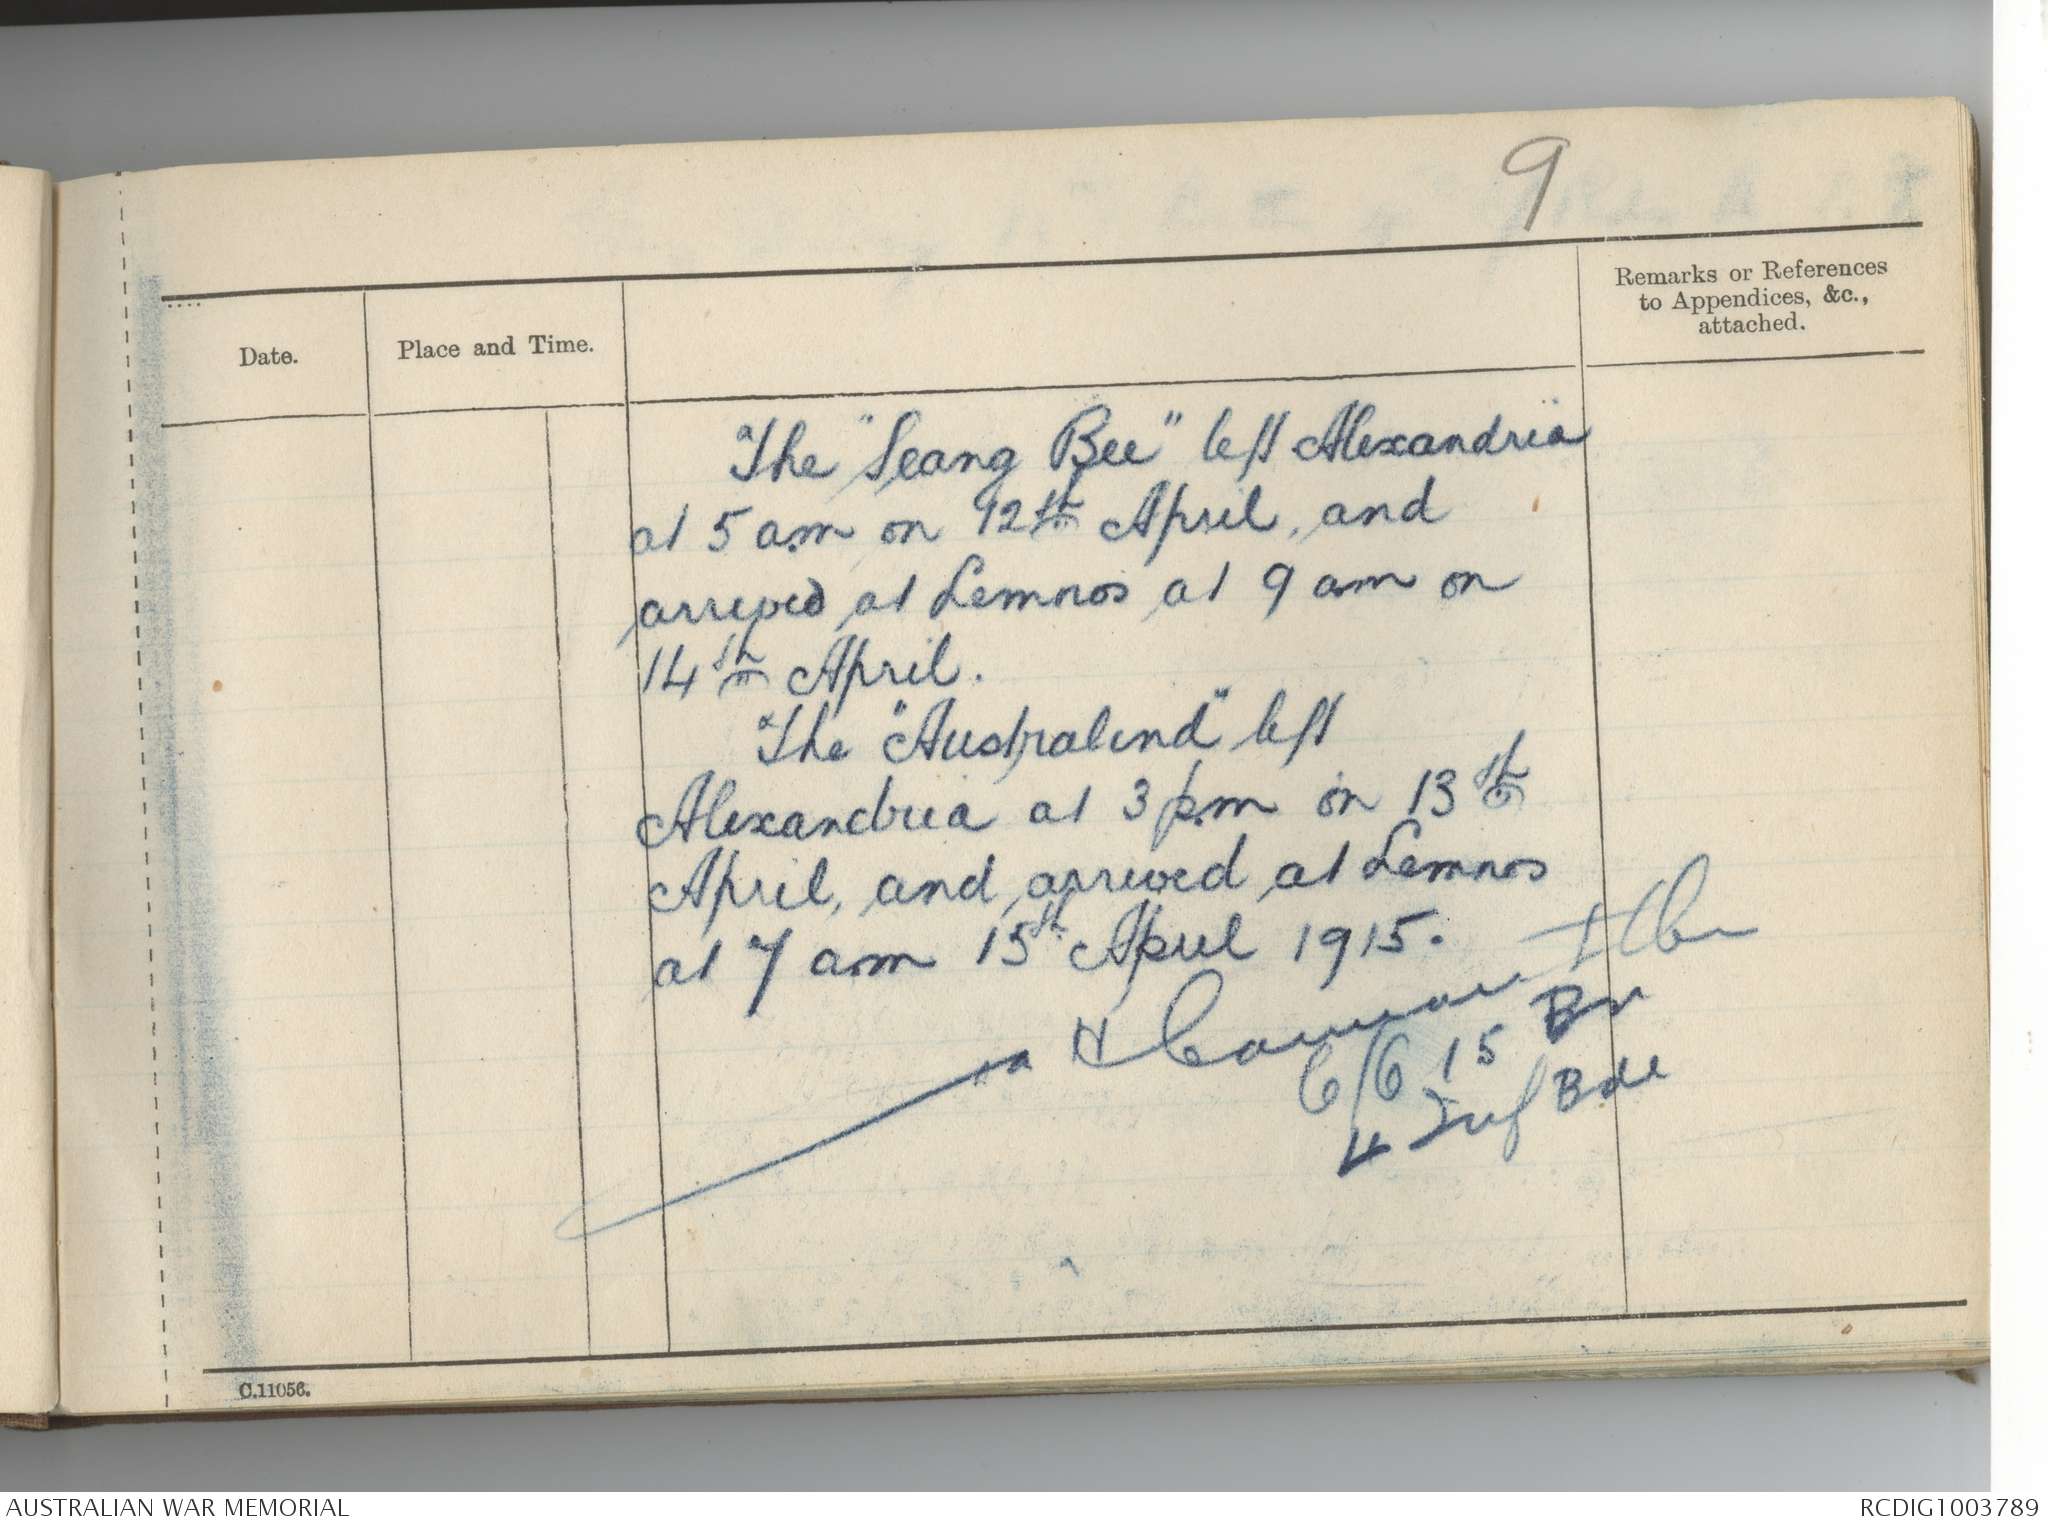 9
Date.
Place and Time.
Remarks or References
to Appendices, &c.,
attached.
The "Seang Bee" left Alexandria
at 5 am on 12th April, and
arrived at Lemnos at 9 am on
14th April.
The "Australind" left
Alexandria at 3 pm on 13th
April, and arrived at Lemnos
at 7 am 15th April 1915.
6/6 15 Bn
4 Inf Bde
C.11056.
AUSTRALIAN WAR MEMORIAL
RCDIG1003789